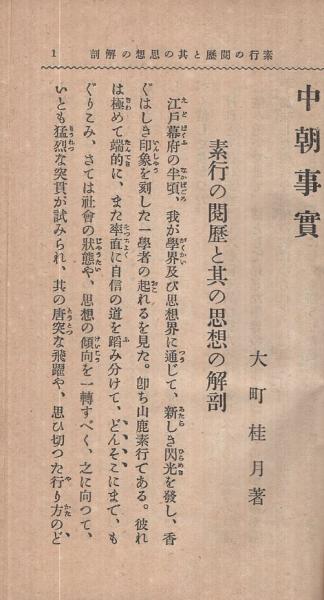 素行の閱歷と其の思想の解剖 1
中朝事實
大町桂月著
素行の閱歷と其の思想の解剖
江戶幕府の半頃、我が學界及び思想界に通じて、新しき閃光を發し、香
ぐはしき印象を刻した一學者の起れるを見た。卽ち山鹿素行である。彼れ
は極めて端的に、また率直に自信の道を蹈み分けて、どんそこにまで、も
ぐりこみ、さては社會の狀態や、思想の傾向を一轉すべく、之に向つて、
いとも猛烈な突貫が試みられ、其の唐突な飛躍や、思ひ切つた行り方のど、